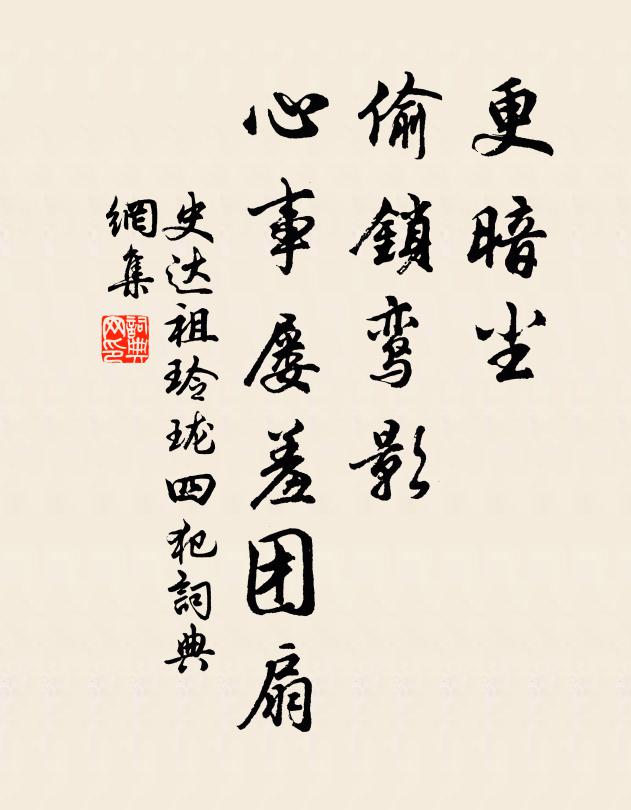 更暗尘
偷鎖鸾影
心事屡羞团扇
史达祖玲珑四犯詞典
網集
詞典
网印